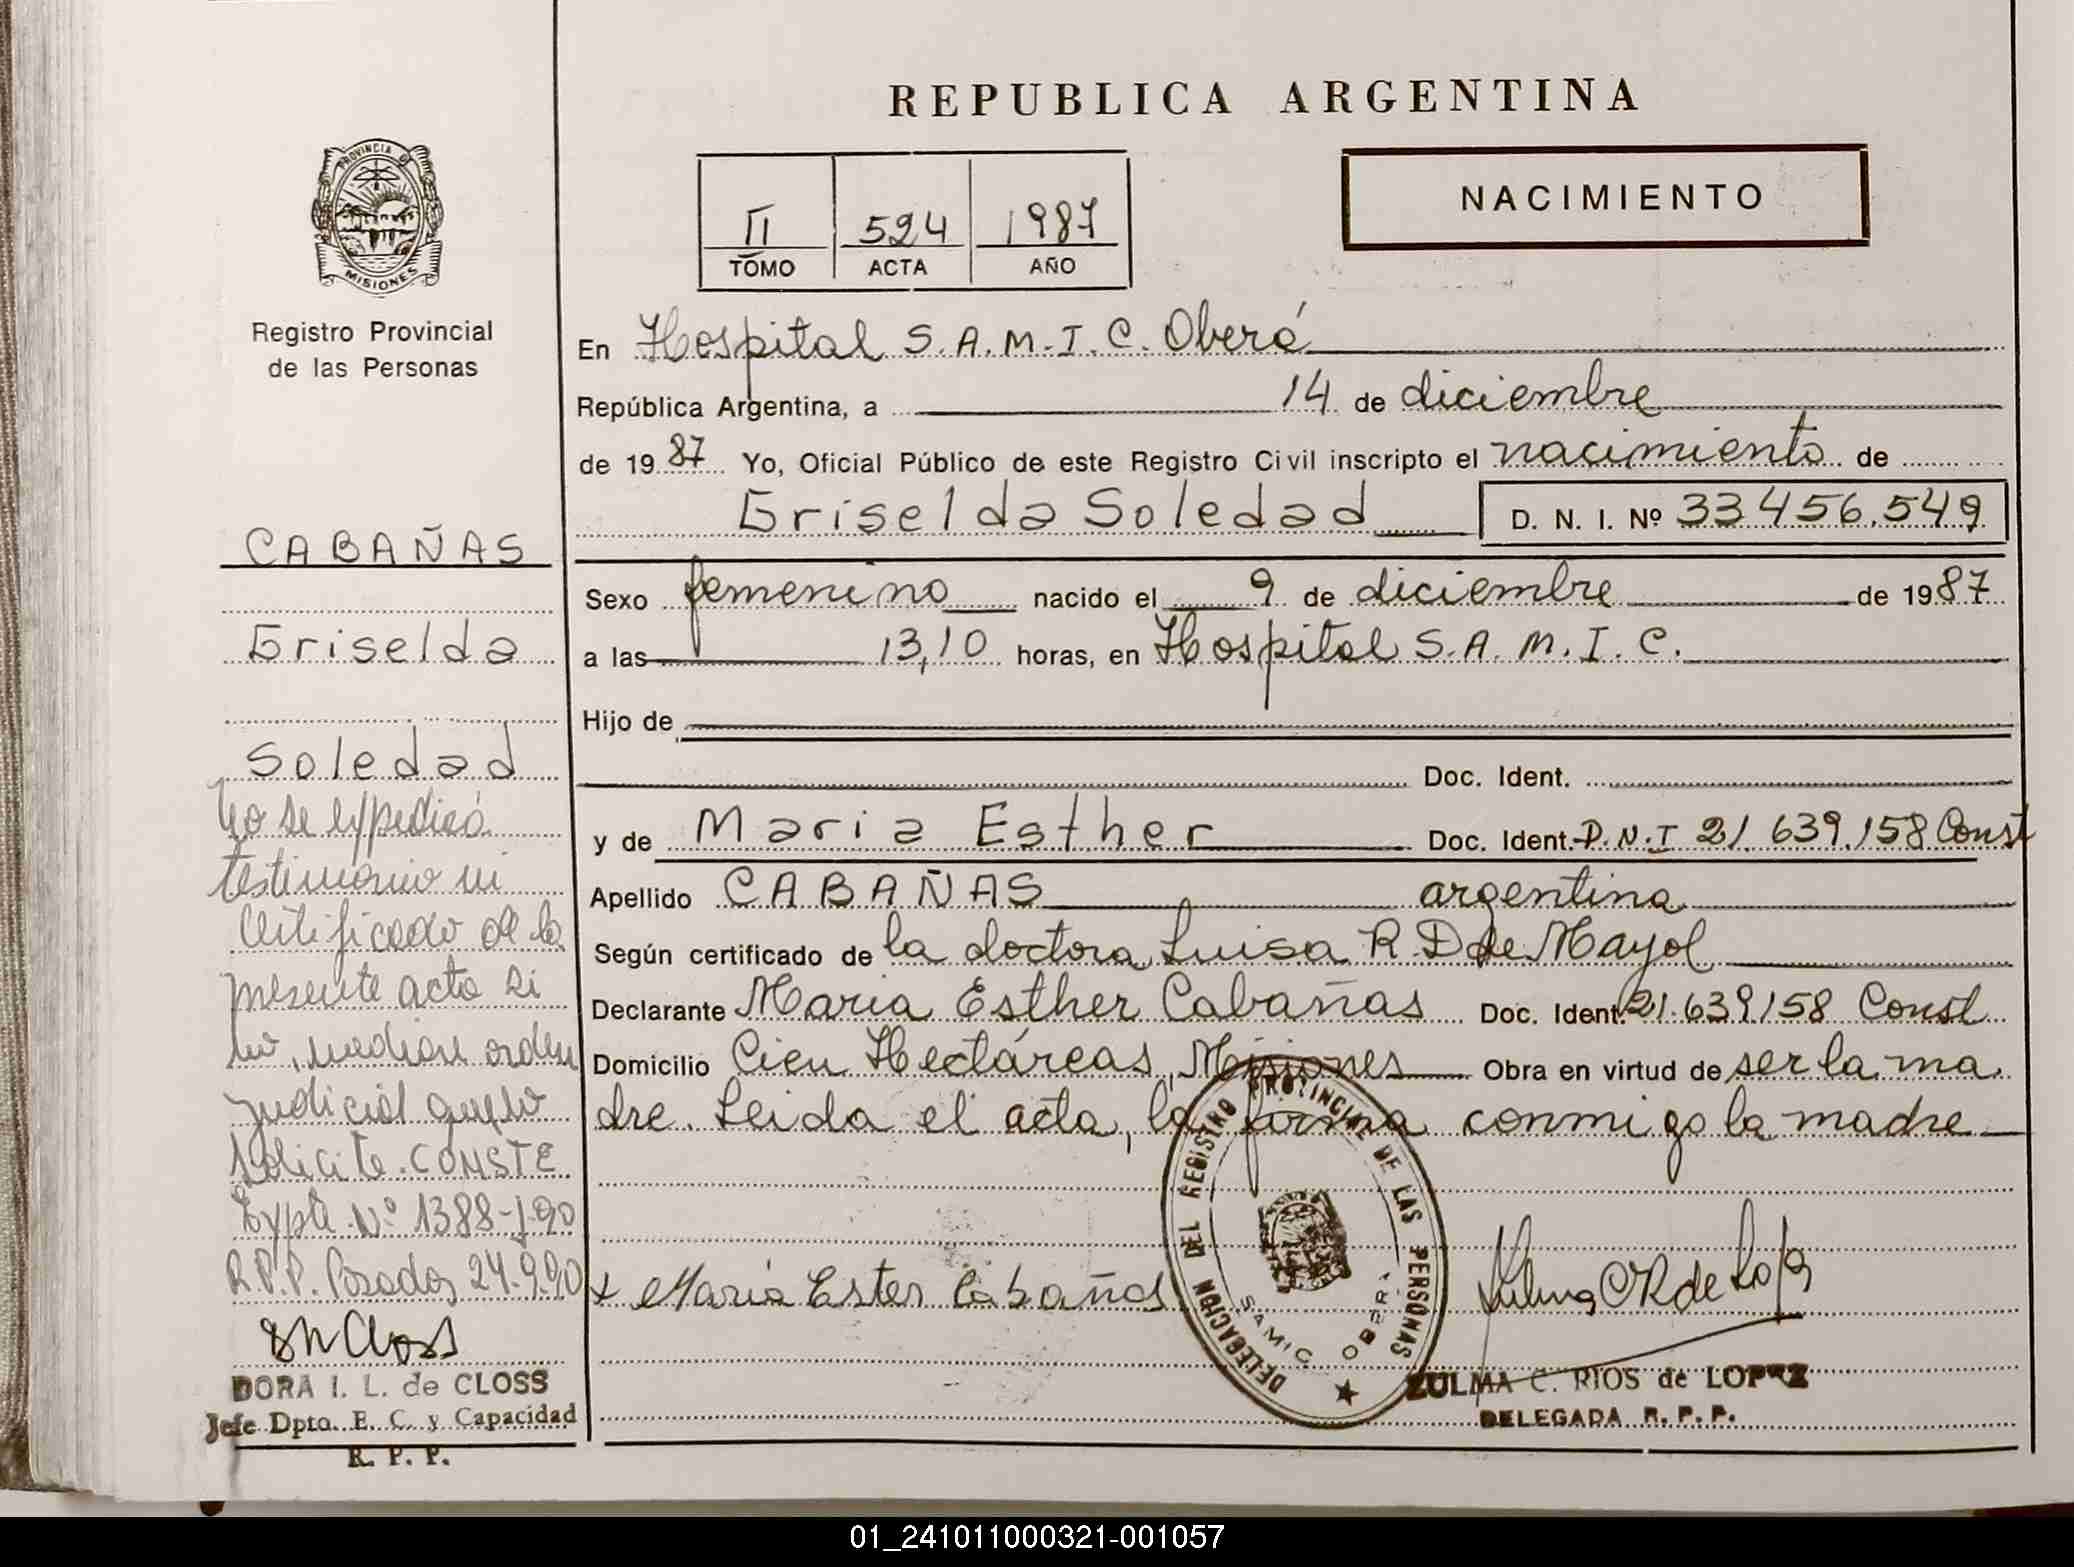 REPUBLICA ARGENTINA
PROVINCIA D
MISIONES
Registro Provincial
de las Personas
II 524 1987
TOMO ACTA AÑO
NACIMIENTO
En Hospital S.A.M.I.C. Oberá
República Argentina, a 14 de diciembre
de 1987 Yo, Oficial Público de este Registro Civil inscripto el nacimiento de
Griselda Soledad D. N. I. Nº 33456.549
Sexo femenino nacido el 9 de diciembre de 1987
a las 13,10 horas, en Hospital S.A.M.I.C.
Hijo de
Doc. Ident.
y de Maria Esther Doc. Ident. D.N.I 21 639.158 Const
Apellido CABAÑAS argentina
Según certificado de la doctora Luisa R. D de Mayol
Declarante Maria Esther Cabañas Doc. Ident. 21.639.158 Const
Domicilio Cien Hectáreas, Misiones Obra en virtud de ser la ma
dre. Leida el acta, la firma conmigo la madre
x Maria Ester Cabañas
Zulma C R de Lopez
DELEGACION DEL REGISTRO PROVINCIAL DE LAS PERSONAS
SAMIC OBERÁ
ZULMA C. RIOS de LOPEZ
DELEGADA R. P. P.
CABAÑAS
Griselda
Soledad
No se expedirá
testimonio ni
Certificado de la
presente acta si
no, mediare orden
judicial que lo
solicite. CONSTE
Expte Nº 1388-J-90
R.P.P. Posadas 24.9.90
DORA I. L. de CLOSS
Jefe Dpto. E. C. y Capacidad
R. P. P.
01_241011000321-001057